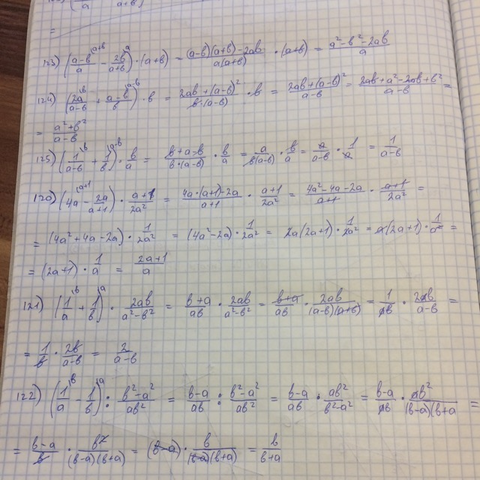 123) ((a-b)/a - 2b/(a+b)) · (a+b) = ((a-b)(a+b) - 2ab)/(a(a+b)) · (a+b) = (a²-b²-2ab)/a
124) (2a/(a-b) + (a-b)/b) · b = (2ab+(a-b)²)/(b·(a-b)) · b = (2ab+(a-b)²)/(a-b) = (2ab+a²-2ab+b²)/(a-b) =
= (a²+b²)/(a-b)
125) (1/(a-b) + 1/b) · b/a = (b+a-b)/(b·(a-b)) · b/a = a/(b(a-b)) · b/a = a/(a-b) · 1/a = 1/(a-b)
120) (4a - 2a/(a+1)) · (a+1)/2a² = (4a·(a+1)-2a)/(a+1) · (a+1)/2a² = (4a²-4a-2a)/(a+1) · (a+1)/2a² =
= (4a²+4a-2a) · 1/2a² = (4a²-2a) · 1/2a² = 2a(2a+1) · 1/2a² = a(2a+1) · 1/a² =
= (2a+1) · 1/a = (2a+1)/a
121) (1/a + 1/b) · 2ab/(a²-b²) = (b+a)/ab · 2ab/(a²-b²) = (b+a)/ab · 2ab/((a-b)(a+b)) = 1/ab · 2ab/(a-b) =
= 1/b · 2b/(a-b) = 2/(a-b)
122) (1/a - 1/b) : (b²-a²)/ab² = (b-a)/ab : (b²-a²)/ab² = (b-a)/ab · ab²/(b²-a²) = (b-a)/ab · ab²/((b-a)(b+a) =
= (b-a)/b · b²/((b-a)(b+a)) = (b-a) · b/((b-a)(b+a)) = b/(b+a)